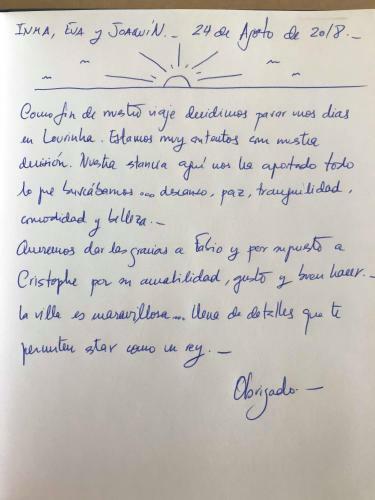 INMA, EVA y JOAQUÍN.- 24 de Agosto de 2018.-
Como fin de nuestro viaje decidimos parar unos días
en Lourinha. Estamos muy contentos con nuestra
decisión. Nuestra stancia aquí nos ha aportado todo
lo que buscábamos... descanso, paz, tranquilidad,
comodidad y belleza.-
Queremos dar las gracias a Fabio y por supuesto a
Cristophe por su amabilidad, gusto y buen hacer.-
la villa es maravillosa... llena de detalles que te
permiten star como un rey.-
Obrigado.-